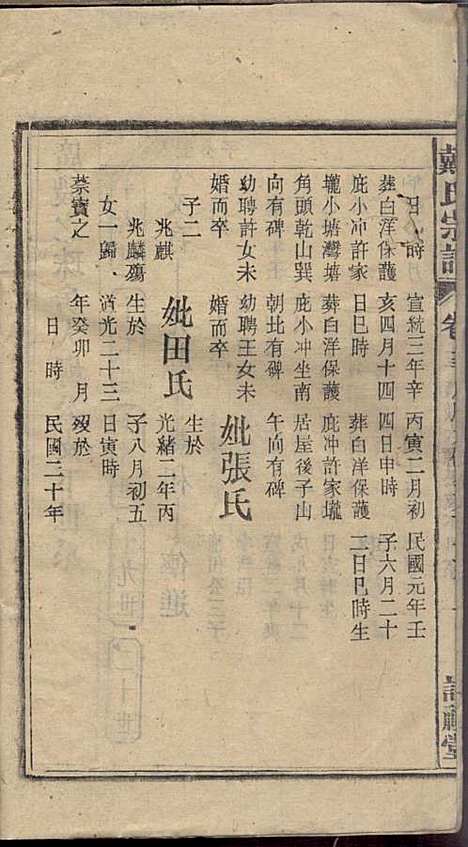 戴氏宗譜 卷
日 時 宣統三年辛 丙寅二月初 民國元年壬
葬白洋保護 亥四月十四 四日申時 子六月二十
庇小冲許家 日巳時 葬白洋保護 二日巳時生
壠小塘灣塘 葬白洋保護 庇冲許家壠
角頭乾山巽 庇小冲坐南 居屋後子山
向有碑 朝北有碑 午向有碑
幼聘許女未 幼聘王女未
婚而卒 婚而卒 妣張氏
子二 生於
兆麒 妣田氏 光緒二年丙
兆麟殤 生於 子八月初五
女一歸 道光二十三 日寅時
蔡寶之 年癸卯 月 歿於
日 時 民國二十年